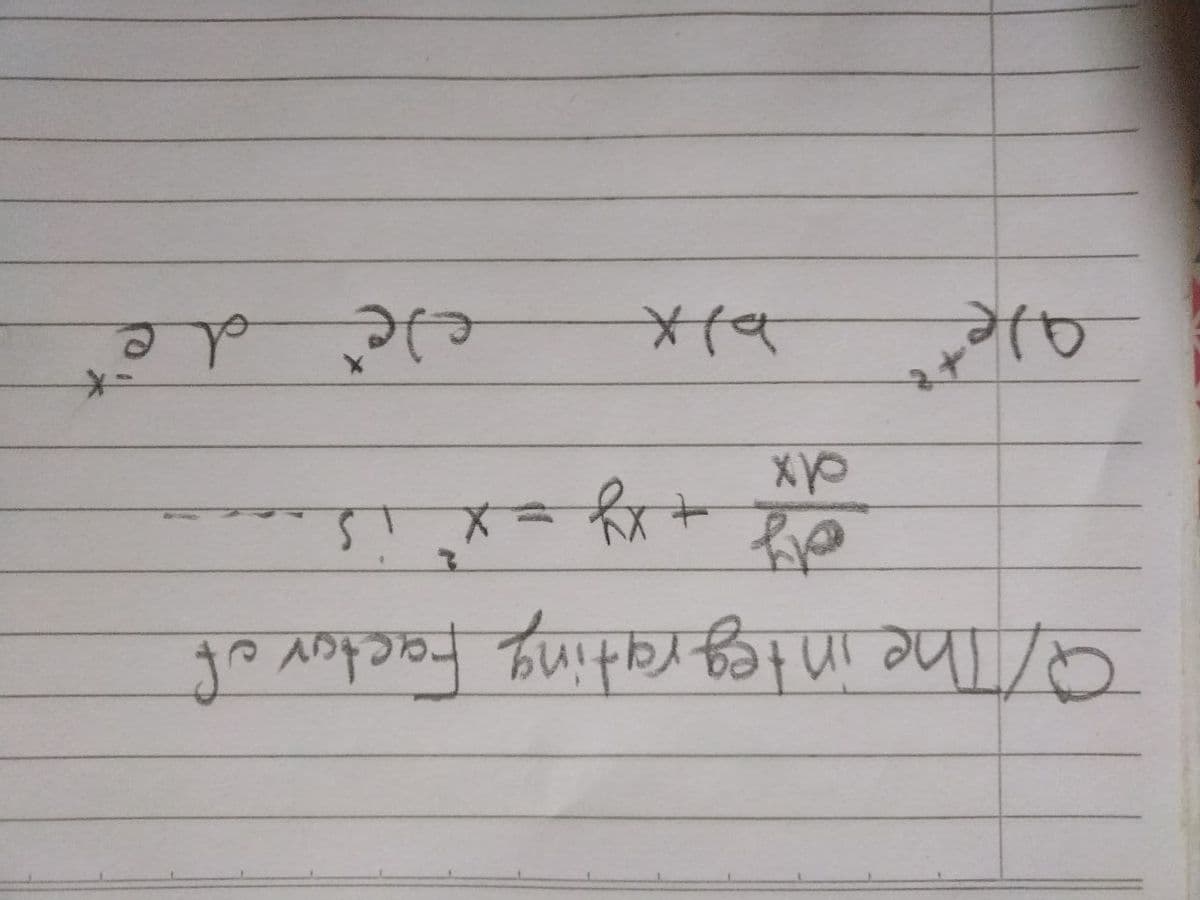 Q/The integrating Factor of
dy/dx + xy = x² is ----
a) e^x² b) x c) e^x d e^-x